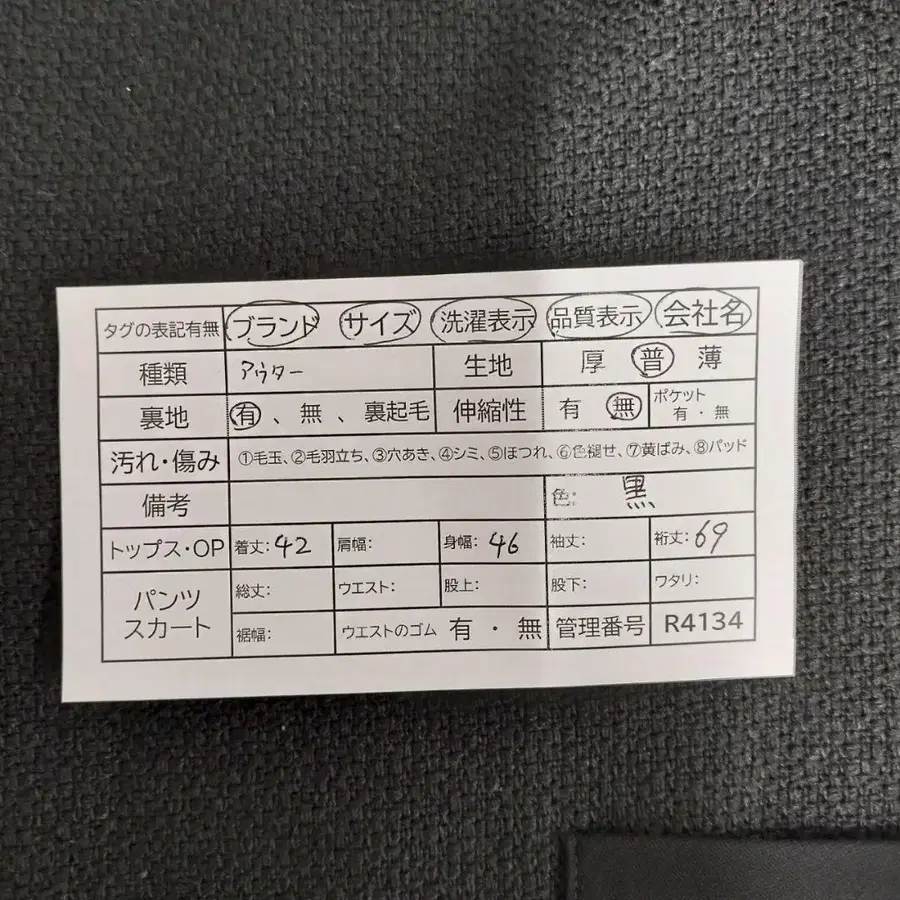 タグの表記有無 ブランド サイズ 洗濯表示 品質表示 会社名
種類 アウター 生地 厚 普 薄
裏地 有、無、裏起毛 伸縮性 有 無 ポケット 有・無
汚れ・傷み ①毛玉、②毛羽立ち、③穴あき、④シミ、⑤ほつれ、⑥色褪せ、⑦黄ばみ、⑧パッド
備考 色: 黒
トップス・OP 着丈:42 肩幅: 身幅:46 袖丈: 裄丈:69
パンツ スカート 総丈: ウエスト: 股上: 股下: ワタリ:
裾幅: ウエストのゴム 有・無 管理番号 R4134